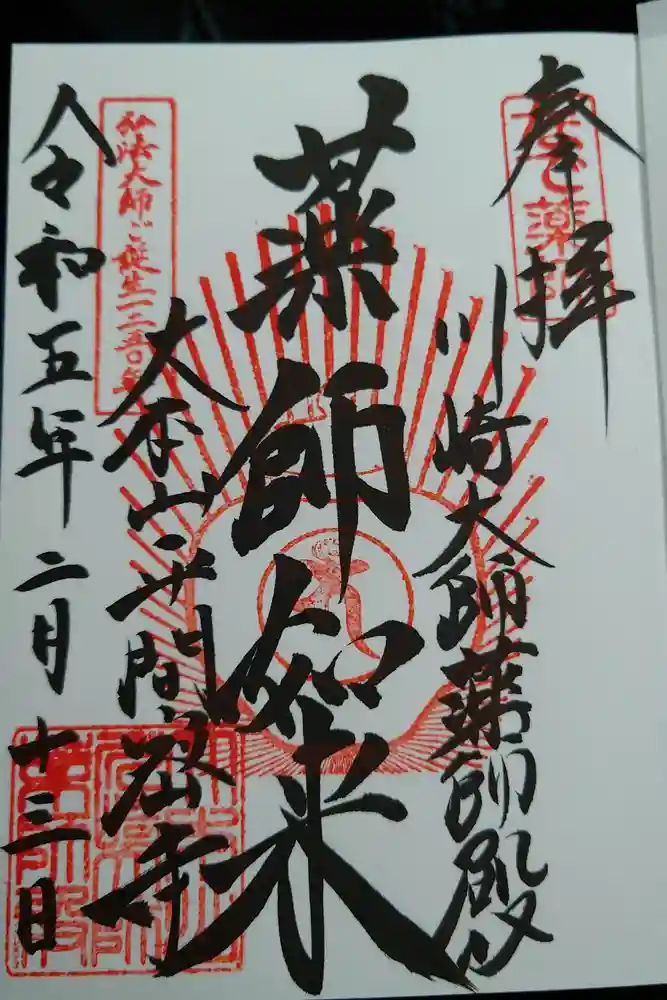 奉拝
なで薬師
川崎大師薬師殿
薬師如来
大本山平間密寺
弘法大師ご誕生一二五〇年
令和五年二月十三日